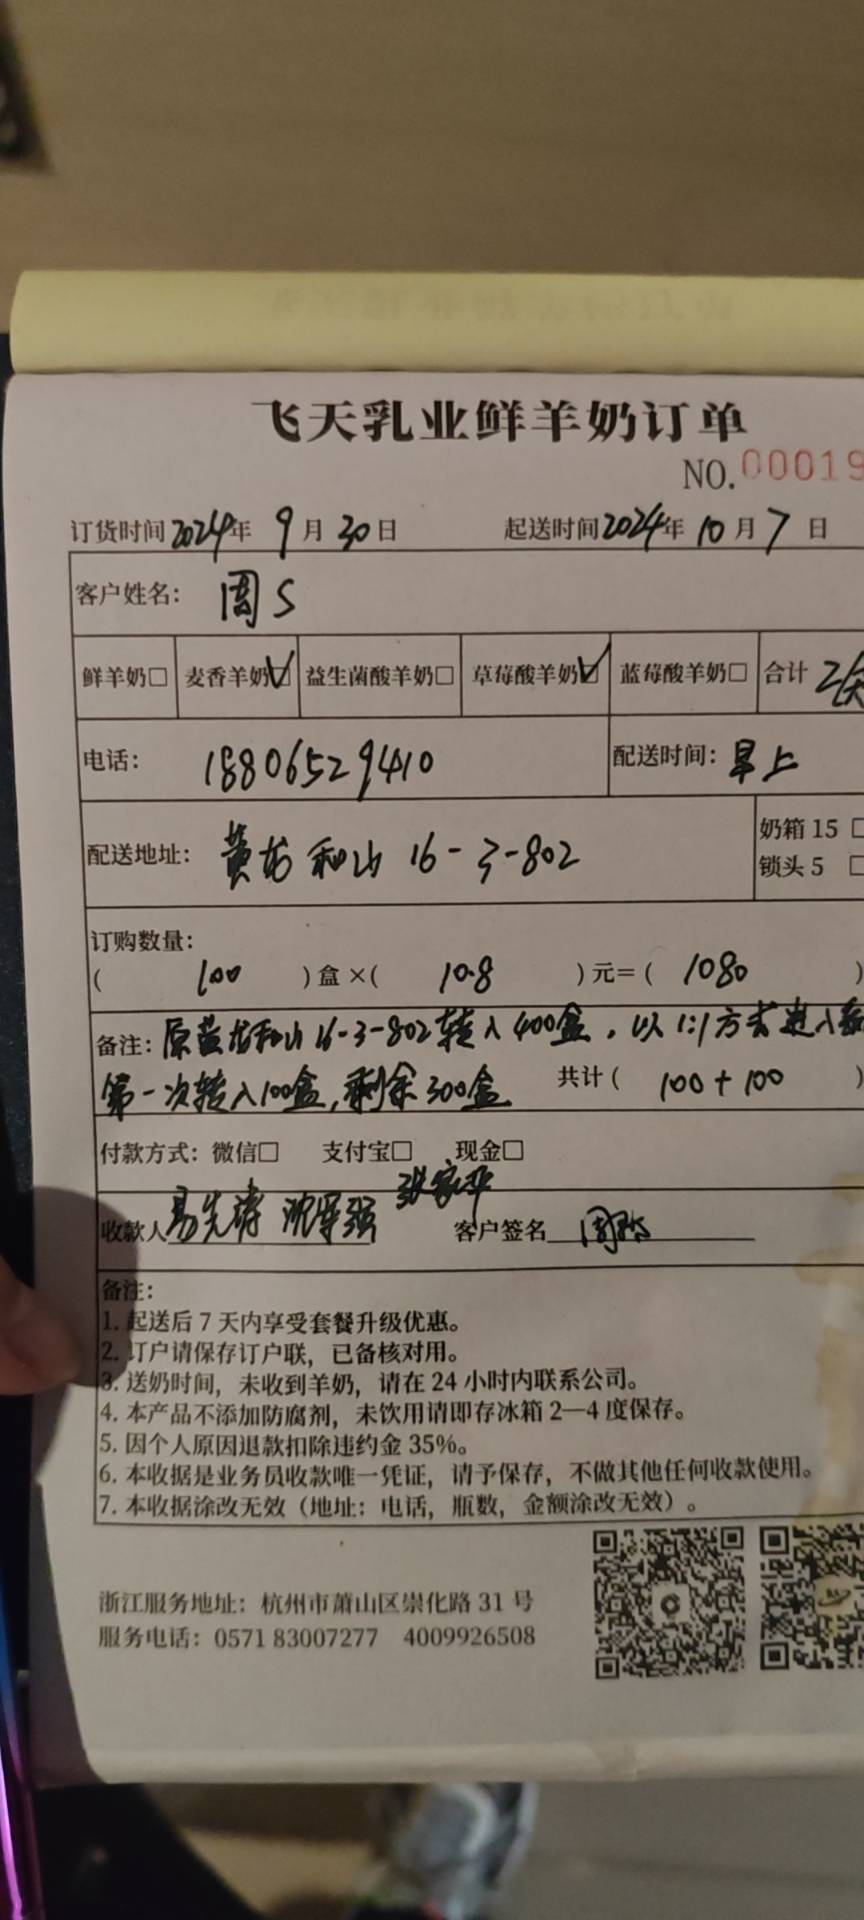 飞天乳业鲜羊奶订单
NO.00019
订货时间2024年 9月30日 起送时间2024年10月7日
客户姓名: 周S
鲜羊奶□ 麦香羊奶☑ 益生菌酸羊奶□ 草莓酸羊奶☑ 蓝莓酸羊奶□ 合计
电话: 18806529410 配送时间: 早上
配送地址: 黄龙和山 16-3-802 奶箱 15 □
锁头 5 □
订购数量:
( 100 ) 盒 ×( 10.8 ) 元= ( 1080 )
备注: 原黄龙和山16-3-802转入400盒, 以1:1方式进入
第一次转入100盒, 剩余300盒 共计 ( 100+100 )
付款方式: 微信□ 支付宝□ 现金□
收款人 易先涛 沈军强 张家平 客户签名 周
备注:
1. 起送后 7 天内享受套餐升级优惠。
2. 订户请保存订户联, 已备核对用。
3. 送奶时间, 未收到羊奶, 请在 24 小时内联系公司。
4. 本产品不添加防腐剂, 未饮用请即存冰箱 2—4 度保存。
5. 因个人原因退款扣除违约金 35%。
6. 本收据是业务员收款唯一凭证, 请予保存, 不做其他任何收款使用。
7. 本收据涂改无效 (地址: 电话, 瓶数, 金额涂改无效) 。
浙江服务地址: 杭州市萧山区崇化路 31 号
服务电话: 0571 83007277 4009926508